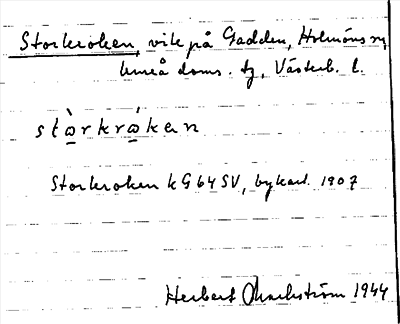 Storkroken, vik på Gadden, Holmöns sn,
Umeå doms. tg, Västerb. l.
stạ̀rkrạ́kan
Storkroken kG64SV, bykart. 1907
Herbert Markström 1944